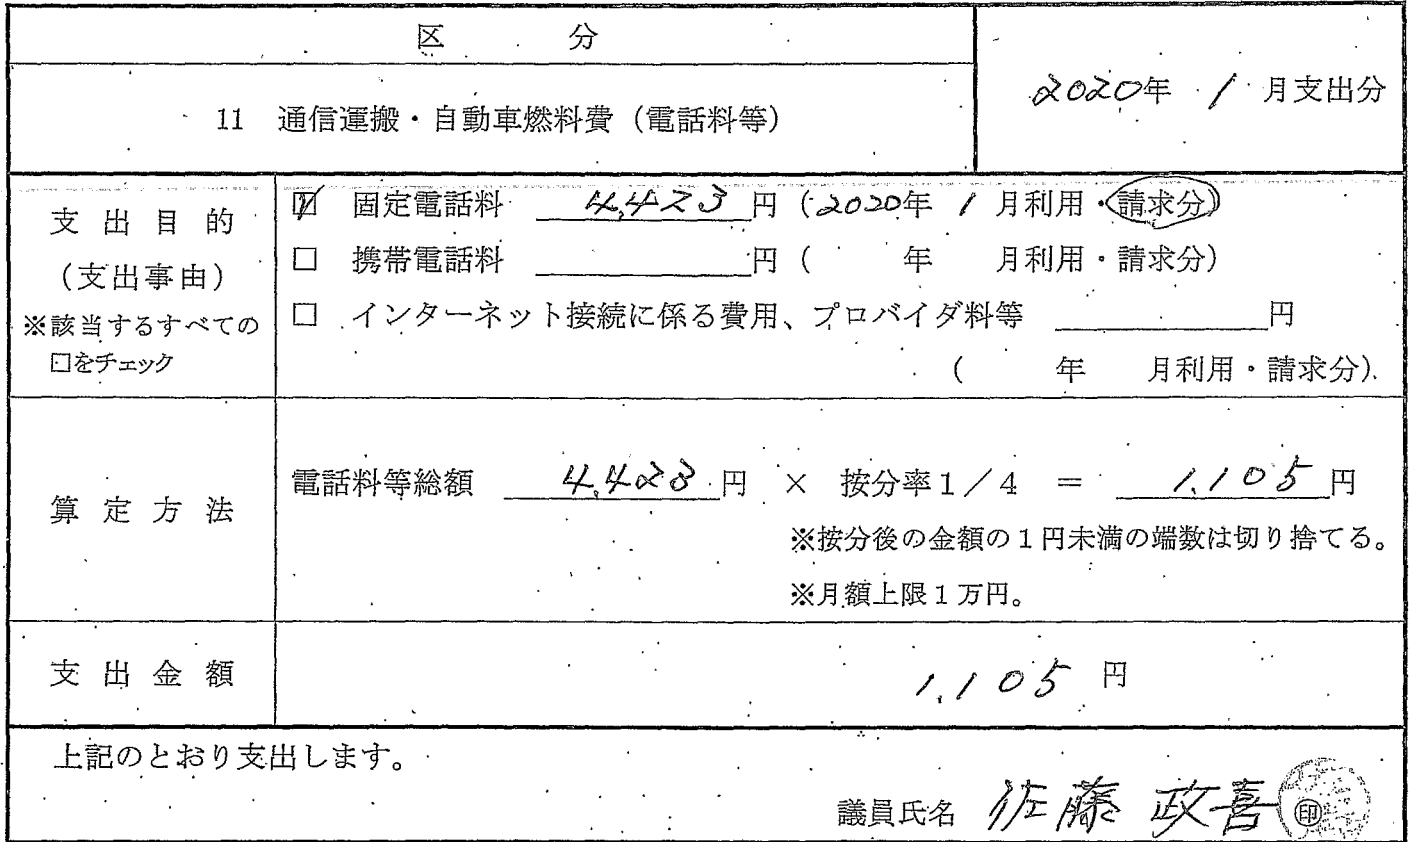 区 分
2020年 1 月支出分
11 通信運搬・自動車燃料費（電話料等）
支出目的
（支出事由）
※該当するすべての
□をチェック
☑ 固定電話料 4,423 円（2020年 1 月利用・請求分）
□ 携帯電話料 円（ 年 月利用・請求分）
□ インターネット接続に係る費用、プロバイダ料等 円
（ 年 月利用・請求分）
算定方法
電話料等総額 4,423 円 × 按分率1／4 ＝ 1,105 円
※按分後の金額の1円未満の端数は切り捨てる。
※月額上限1万円。
支出金額
1,105 円
上記のとおり支出します。
議員氏名 佐藤 政喜 ㊞